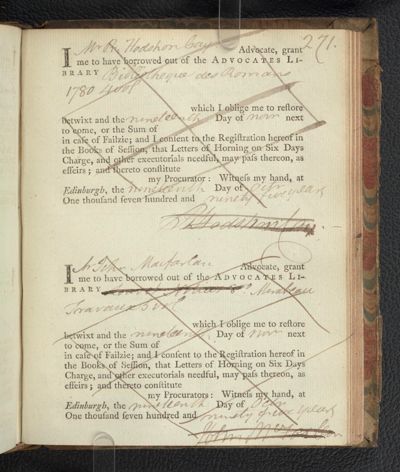 271.
I Mr R. Hodshon Cay Advocate, grant
me to have borrowed out of the ADVOCATES LI-
BRARY Bibliotheque des Romans
1780
which I oblige me to reſtore
betwixt and the nineteenth Day of novr next
to come, or the Sum of
in caſe of Failzie; and I conſent to the Regiſtration hereof in
the Books of Seſſion, that Letters of Horning on Six Days
Charge, and other executorials needful, may paſs thereon, as
effeirs; and thereto conſtitute
my Procurator: Witneſs my hand, at
Edinburgh, the nineteenth Day of
One thouſand ſeven hundred and ninety five years
R Hodshon Cay.
I Mr John Macfarlan Advocate, grant
me to have borrowed out of the ADVOCATES LI-
BRARY Mirabeau
which I oblige me to reſtore
betwixt and the nineteenth Day of novr next
to come, or the Sum of
in caſe of Failzie; and I conſent to the Regiſtration hereof in
the Books of Seſſion, that Letters of Horning on Six Days
Charge, and other executorials needful, may paſs thereon, as
effeirs; and thereto conſtitute
my Procurators: Witneſs my hand, at
Edinburgh, the nineteenth Day of
One thouſand ſeven hundred and ninety five years
John Macfarlan